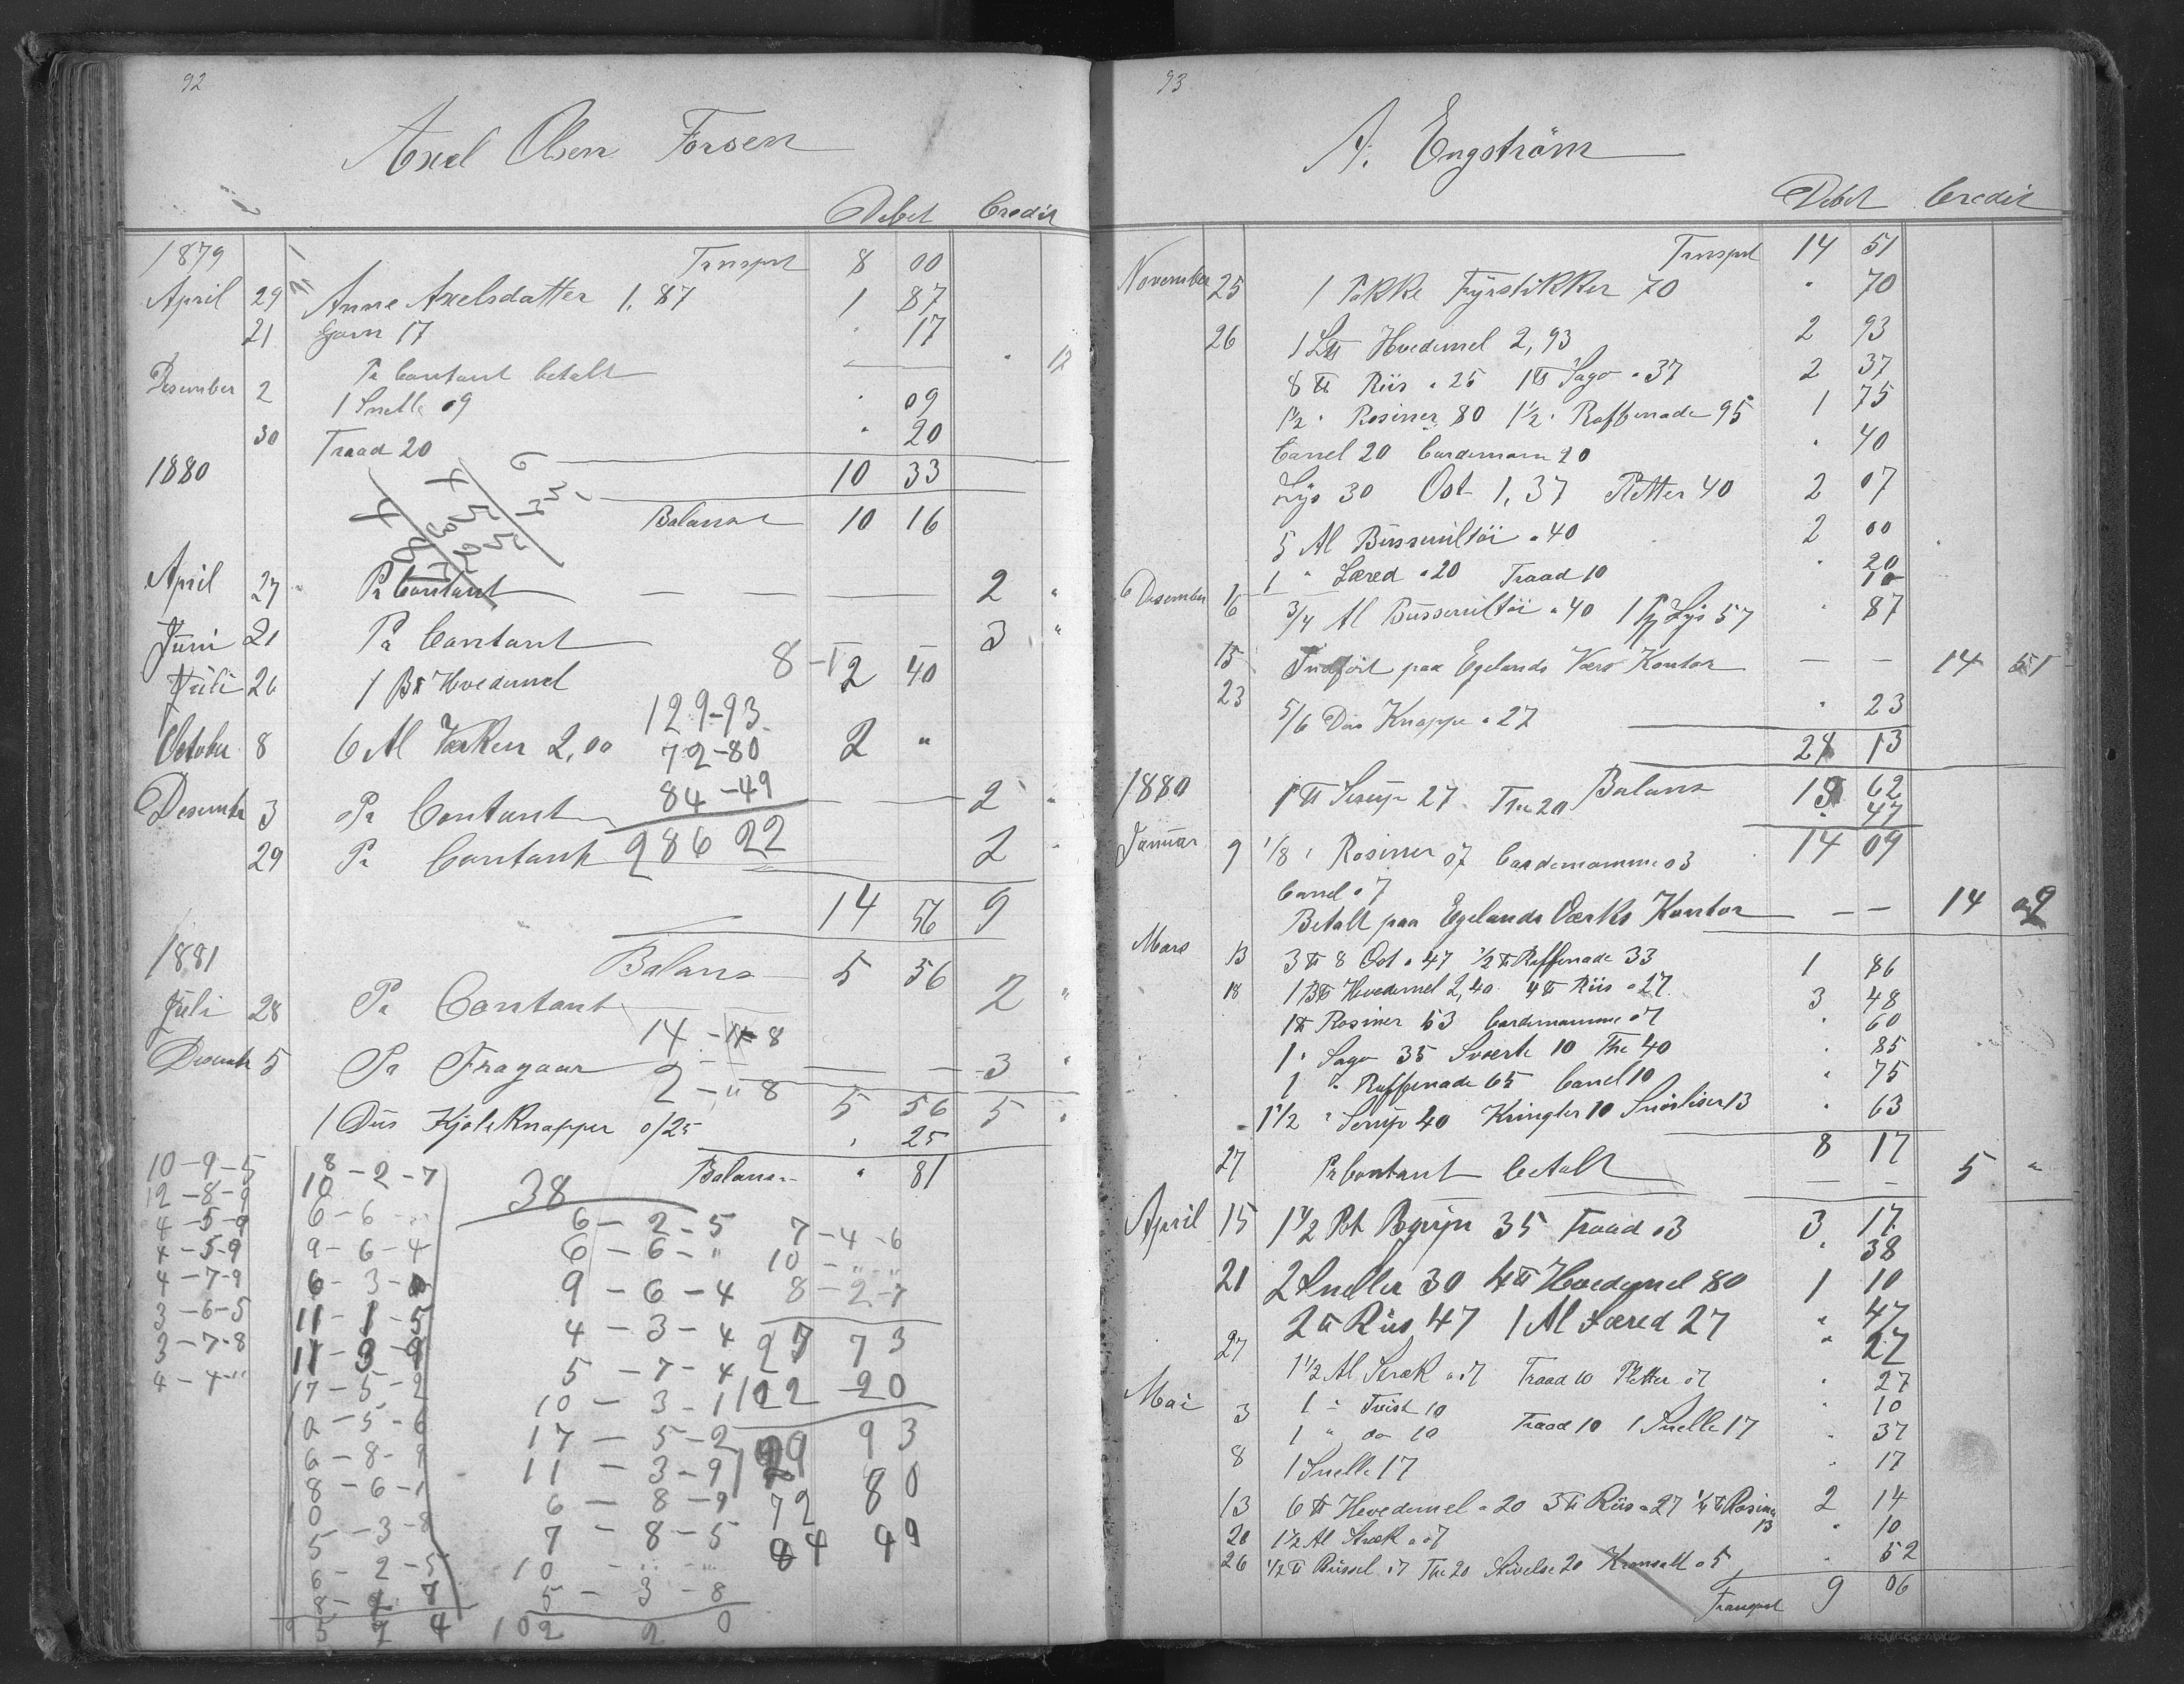 92
Axel Olsen Forsen
Debet Credit
1879 Trnsprt 8 00
April 29 Anne Axelsdatter 1,87 1 87
21 Garn 17 " 17
Pr Contant betalt " 17
Desember 2 1 Snelle 09 " 09
30 Traad 20 " 20
1880 10 33
Balanse 10 16
April 27 Pr Contant — — — 2 "
Juni 21 Pr Contant — — 3 "
8 - 1
Juli 26 1 B℔ Hvedemel 2 40
129-93
October 8 6 Al Værken 2,00 2 "
72-80
84-49
Desember 3 Pr Contant — — 2 "
286 22
29 Pr Contant 2 "
14 56 9
1881 Balanse 5 56
Juli 28 Pr Contant 2 "
14 - 8
Desember 5 Pr Fragaar — — 3 "
2 - " 8
5 56 5 "
1 Dus Kjoleknapper 0/25 " 25
Balanse " 81
10-9-5
12-8-9
4-5-9
4-5-9
4-7-9
3-6-5
3-7-8
4-4-"
8-2-7
10
6-6-"
9-6-4
6-3-
11-1-5
11-3-9
17-5-2
10-5-6
6-8-9
8-6-1
10
5-3-8
6-2-5
8-2-7
38
6-2-5
6-6-"
9-6-4
4-3-4
5-7-4
10-3-1
17-5-2
11-3-9
6-8-9
7-8-5
10 - " - "
5-3-8
102 2 0
7-4-6
10-"-"
8-2-7
27 7 3
102 20
129 93
72 80
84 49
93
A. Engström
Debet Credit
Trnsprt 14 51
November 25 1 Pakke Fyrstikker 70 " 70
26 1 L℔ Hvedemel 2,93 2 93
8 ℔ Riis a 25 1 ℔ Sago a 37 2 37
1½ " Rosiner 80 1½ " Raffenade 95 1 75
Canel 20 Cardemom 20 " 40
Lys 30 Ost 1,37 Pletter 40 2 07
5 Al Busserultöi a 40 2 00
1 " Læred a 20 Traad 10 " 20
10
Desember 6 3/4 Al Busserultöi a 40 1 Pk Lys 57 " 87
15 Indfört paa Egelands Værs Kontor — — 14 51
23 5/6 Dus Knappe a 27 " 23
24 13
1880 Balans
1 ℔ Sirup 27 The 20 13 62
" 47
14 09
Januar 9 1/8 " Rosiner 07 Cardemomme 03
Canel 07
Betalt paa Egelands Værks Kontor — — 14 09
Mars 13 3 ℔ 8 Ost a 47 ½ ℔ Raffenade 33 1 86
18 1 B℔ Hvedemel 2,40 4 ℔ Riis a 27 3 48
1 ℔ Rosiner 53 Cardemomme 07 " 60
1 " Sago 35 Sværte 10 The 40 " 85
1 " Raffenade 65 Canel 10 " 75
1½ " Sirup 40 Kringler 10 Snörliser 13 " 63
8 17
27 Pr Contant betalt — — 5 "
April 15 1½ Pot Bgryn 35 Traad 03 3 17
" 38
21 2 Sneller 30 4 ℔ Hvedemel 80 1 10
2 ℔ Riis 47 1 Al Læred 27 " 47
" 27
27 1½ Al Stræk a 07 Traad 10 Pletter 07 " 27
Mai 3 1 " Tvist 10 " 10
1 " do 10 Traad 10 1 Snelle 17 " 37
8 1 Snelle 17 " 17
13 6 ℔ Hvedemel a 20 3 ℔ Riis a 27 ¼ ℔ Rosiner 13 2 14
20 1½ Al Stræk a 07 " 10
26 ½ ℔ Russel 07 The 20 Stivelse 20 05 " 52
Transport 9 06